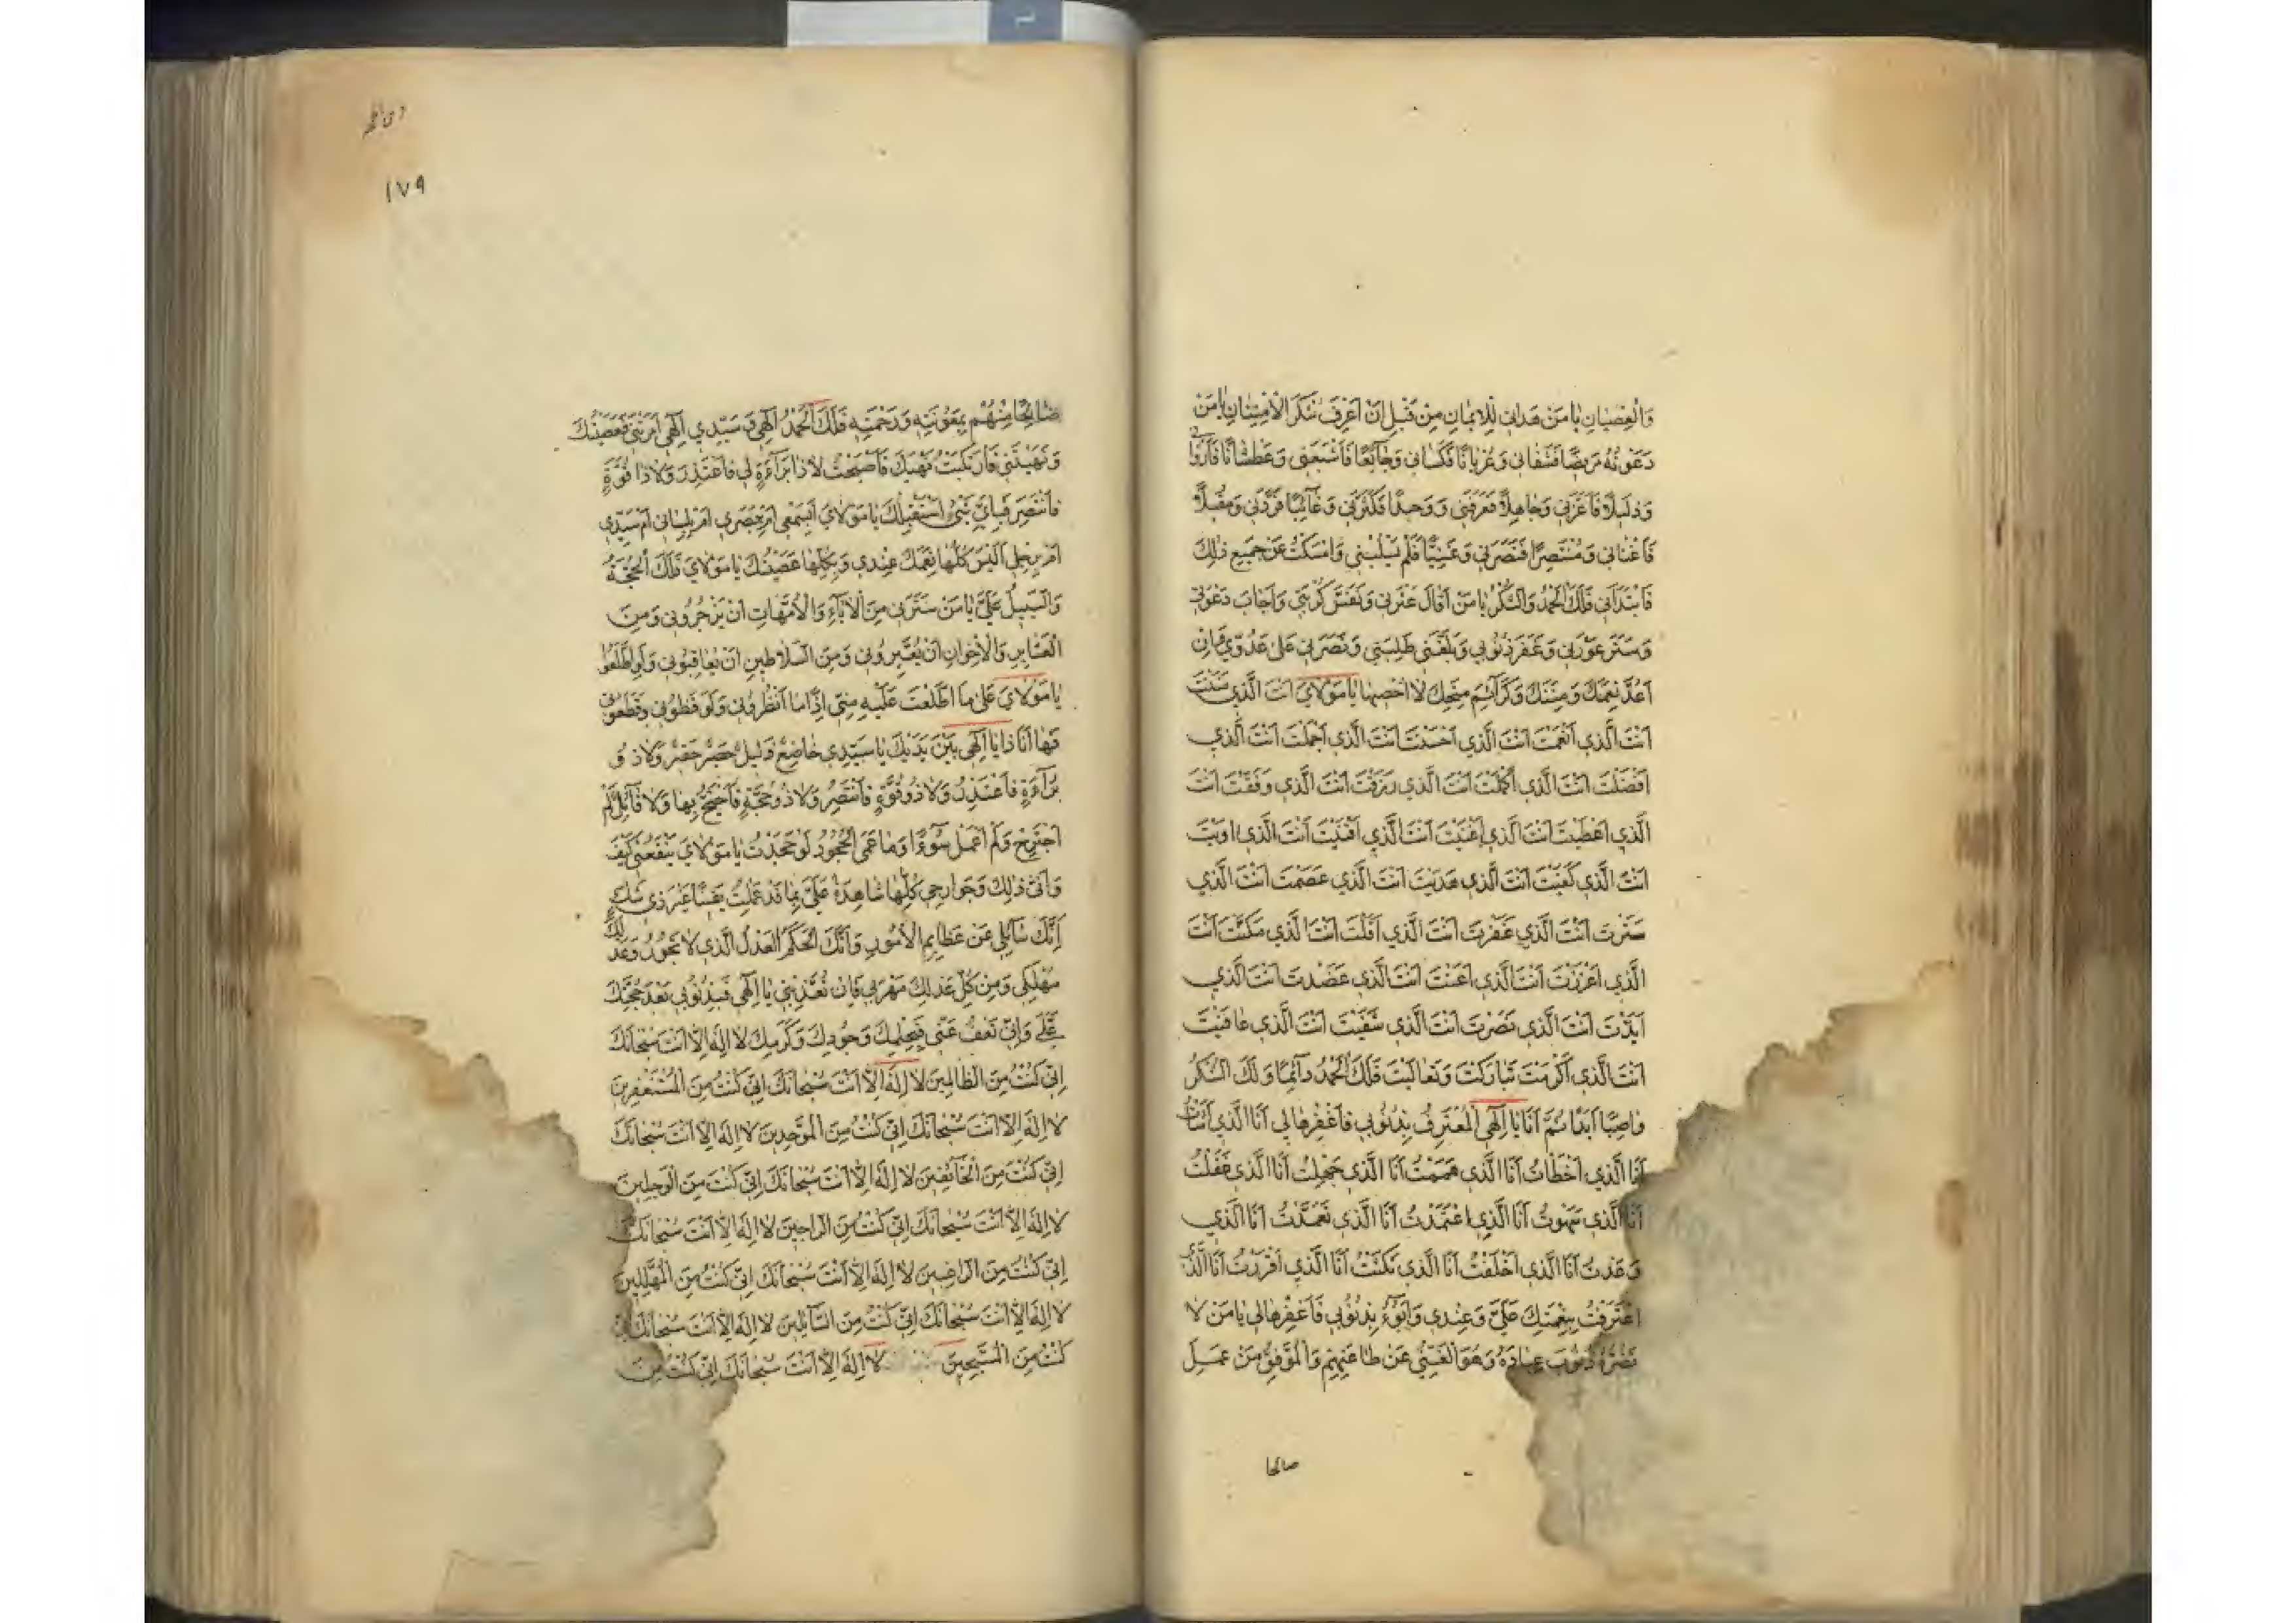 وَالْعِصْيَانِ يَا مَنْ هَدَانِي لِلْإِيمَانِ مِنْ قَبْلِ أَنْ أَعْرِفَ شُكْرَ الْاِمْتِنَانِ يَا مَنْ
دَعَوْتُهُ مَرِيضًا فَشَفَانِي وَعُرْيَانًا فَكَسَانِي وَجَائِعًا فَأَشْبَعَنِي وَعَطْشَانًا فَأَرْوَانِي
وَذَلِيلًا فَأَعَزَّنِي وَجَاهِلًا فَعَرَّفَنِي وَوَحِيدًا فَكَثَّرَنِي وَغَائِبًا فَرَدَّنِي وَمُقِلًّا
فَأَغْنَانِي وَمُنْتَصِرًا فَنَصَرَنِي وَغَنِيًّا فَلَمْ يَسْلُبْنِي وَأَمْسَكْتُ عَنْ جَمِيعِ ذٰلِكَ
فَابْتَدَأَنِي فَلَكَ الْحَمْدُ وَالشُّكْرُ يَا مَنْ أَقَالَ عَثْرَتِي وَنَفَّسَ كُرْبَتِي وَأَجَابَ دَعْوَتِي
وَسَتَرَ عَوْرَتِي وَغَفَرَ ذُنُوبِي وَبَلَّغَنِي طَلِبَتِي وَنَصَرَنِي عَلَى عَدُوِّي فَإِنْ
أَعُدَّ نِعَمَكَ وَمِنَنَكَ وَكَرَائِمَ مِنَحِكَ لَا أُحْصِيهَا يَا مَوْلَايَ أَنْتَ الَّذِي مَنَنْتَ
أَنْتَ الَّذِي أَنْعَمْتَ أَنْتَ الَّذِي أَحْسَنْتَ أَنْتَ الَّذِي أَجْمَلْتَ أَنْتَ الَّذِي
أَفْضَلْتَ أَنْتَ الَّذِي أَكْمَلْتَ أَنْتَ الَّذِي رَزَقْتَ أَنْتَ الَّذِي وَفَّقْتَ أَنْتَ
الَّذِي أَعْطَيْتَ أَنْتَ الَّذِي أَغْنَيْتَ أَنْتَ الَّذِي أَقْنَيْتَ أَنْتَ الَّذِي اوَيْتَ
أَنْتَ الَّذِي كَفَيْتَ أَنْتَ الَّذِي هَدَيْتَ أَنْتَ الَّذِي عَصَمْتَ أَنْتَ الَّذِي
سَتَرْتَ أَنْتَ الَّذِي غَفَرْتَ أَنْتَ الَّذِي أَقَلْتَ أَنْتَ الَّذِي مَكَّنْتَ أَنْتَ
الَّذِي أَعْزَزْتَ أَنْتَ الَّذِي أَعَنْتَ أَنْتَ الَّذِي عَضَدْتَ أَنْتَ الَّذِي
أَيَّدْتَ أَنْتَ الَّذِي نَصَرْتَ أَنْتَ الَّذِي شَفَيْتَ أَنْتَ الَّذِي عَافَيْتَ
أَنْتَ الَّذِي أَكْرَمْتَ تَبَارَكْتَ وَتَعَالَيْتَ فَلَكَ الْحَمْدُ دَائِمًا وَلَكَ الشُّكْرُ
وَاصِبًا أَبَدًا ثُمَّ أَنَا يَا إِلٰهِي الْمُعْتَرِفُ بِذُنُوبِي فَاغْفِرْهَا لِي أَنَا الَّذِي أَسَأْتُ
أَنَا الَّذِي أَخْطَأْتُ أَنَا الَّذِي هَمَمْتُ أَنَا الَّذِي جَهِلْتُ أَنَا الَّذِي غَفَلْتُ
أَنَا الَّذِي سَهَوْتُ أَنَا الَّذِي اعْتَمَدْتُ أَنَا الَّذِي تَعَمَّدْتُ أَنَا الَّذِي
وَعَدْتُ أَنَا الَّذِي أَخْلَفْتُ أَنَا الَّذِي نَكَثْتُ أَنَا الَّذِي أَقْرَرْتُ أَنَا الَّذِي
اعْتَرَفْتُ بِنِعْمَتِكَ عَلَيَّ وَعِنْدِي وَأَبُوءُ بِذُنُوبِي فَاغْفِرْهَا لِي يَا مَنْ لَا
تَضُرُّهُ ذُنُوبُ عِبَادِهِ وَهُوَ الْغَنِيُّ عَنْ طَاعَتِهِمْ وَالْمُوَفِّقُ مَنْ عَمِلَ
صالحا
١٧٩
صَالِحًا مِنْهُمْ بِمَعُونَتِهِ وَرَحْمَتِهِ فَلَكَ الْحَمْدُ إِلٰهِي وَسَيِّدِي إِلٰهِي أَمَرْتَنِي فَعَصَيْتُكَ
وَنَهَيْتَنِي فَارْتَكَبْتُ نَهْيَكَ فَأَصْبَحْتُ لَا ذَا بَرَاءَةٍ لِي فَأَعْتَذِرَ وَلَا ذَا قُوَّةٍ
فَأَنْتَصِرَ فَبِأَيِّ شَيْءٍ أَسْتَقْبِلُكَ يَا مَوْلَايَ أَبِسَمْعِي أَمْ بِبَصَرِي أَمْ بِلِسَانِي أَمْ سَيِّدِي
أَمْ بِرِجْلِي أَلَيْسَ كُلُّهَا نِعَمَكَ عِنْدِي وَبِكُلِّهَا عَصَيْتُكَ يَا مَوْلَايَ فَلَكَ الْحُجَّةُ
وَالسَّبِيلُ عَلَيَّ يَا مَنْ سَتَرَنِي مِنَ الْآبَاءِ وَالْأُمَّهَاتِ أَنْ يَزْجُرُونِي وَمِنَ
الْعَشَايِرِ وَالْإِخْوَانِ أَنْ يُعَيِّرُونِي وَمِنَ السَّلَاطِينِ أَنْ يُعَاقِبُونِي وَلَوِ اطَّلَعُوا
يَا مَوْلَايَ عَلَى مَا اطَّلَعْتَ عَلَيْهِ مِنِّي إِذًا مَا أَنْظَرُونِي وَلَرَفَضُونِي وَقَطَعُونِي
فَهَا أَنَا ذَا يَا إِلٰهِي بَيْنَ يَدَيْكَ يَا سَيِّدِي خَاضِعٌ ذَلِيلٌ حَصِرٌ حَقِيرٌ وَلَا ذُو
بَرَاءَةٍ فَأَعْتَذِرُ وَلَا ذُو قُوَّةٍ فَأَنْتَصِرُ وَلَا ذُو حُجَّةٍ فَأَحْتَجُّ بِهَا وَلَا قَائِلٌ لَمْ
أَجْتَرِحْ وَلَمْ أَعْمَلْ سُوءًا وَمَا عَسَى الْجُحُودُ لَوْ جَحَدْتُ يَا مَوْلَايَ يَنْفَعُنِي كَيْفَ
وَأَنَّى ذٰلِكَ وَجَوَارِحِي كُلُّهَا شَاهِدَةٌ عَلَيَّ بِمَا قَدْ عَمِلْتُ يَقِينًا غَيْرَ ذِي شَكٍّ
إِنَّكَ سَائِلِي عَنْ عَظَايِمِ الْأُمُورِ وَأَنَّكَ الْحَكَمُ الْعَدْلُ الَّذِي لَا تَجُورُ وَعَدْلُكَ
مُهْلِكِي وَمِنْ كُلِّ عَدْلِكَ مَهْرَبِي فَإِنْ تُعَذِّبْنِي يَا إِلٰهِي فَبِذُنُوبِي بَعْدَ حُجَّتِكَ
عَلَيَّ وَإِنْ تَعْفُ عَنِّي فَبِحِلْمِكَ وَجُودِكَ وَكَرَمِكَ لَا إِلٰهَ إِلَّا أَنْتَ سُبْحَانَكَ
إِنِّي كُنْتُ مِنَ الظَّالِمِينَ لَا إِلٰهَ إِلَّا أَنْتَ سُبْحَانَكَ إِنِّي كُنْتُ مِنَ الْمُسْتَغْفِرِينَ
لَا إِلٰهَ إِلَّا أَنْتَ سُبْحَانَكَ إِنِّي كُنْتُ مِنَ الْمُوَحِّدِينَ لَا إِلٰهَ إِلَّا أَنْتَ سُبْحَانَكَ
إِنِّي كُنْتُ مِنَ الْخَائِفِينَ لَا إِلٰهَ إِلَّا أَنْتَ سُبْحَانَكَ إِنِّي كُنْتُ مِنَ الْوَجِلِينَ
لَا إِلٰهَ إِلَّا أَنْتَ سُبْحَانَكَ إِنِّي كُنْتُ مِنَ الرَّاجِينَ لَا إِلٰهَ إِلَّا أَنْتَ سُبْحَانَكَ
إِنِّي كُنْتُ مِنَ الرَّاغِبِينَ لَا إِلٰهَ إِلَّا أَنْتَ سُبْحَانَكَ إِنِّي كُنْتُ مِنَ الْمُهَلِّلِينَ
لَا إِلٰهَ إِلَّا أَنْتَ سُبْحَانَكَ إِنِّي كُنْتُ مِنَ السَّائِلِينَ لَا إِلٰهَ إِلَّا أَنْتَ سُبْحَانَكَ إِنِّي
كُنْتُ مِنَ الْمُسَبِّحِينَ لَا إِلٰهَ إِلَّا أَنْتَ سُبْحَانَكَ إِنِّي كُنْتُ مِنَ